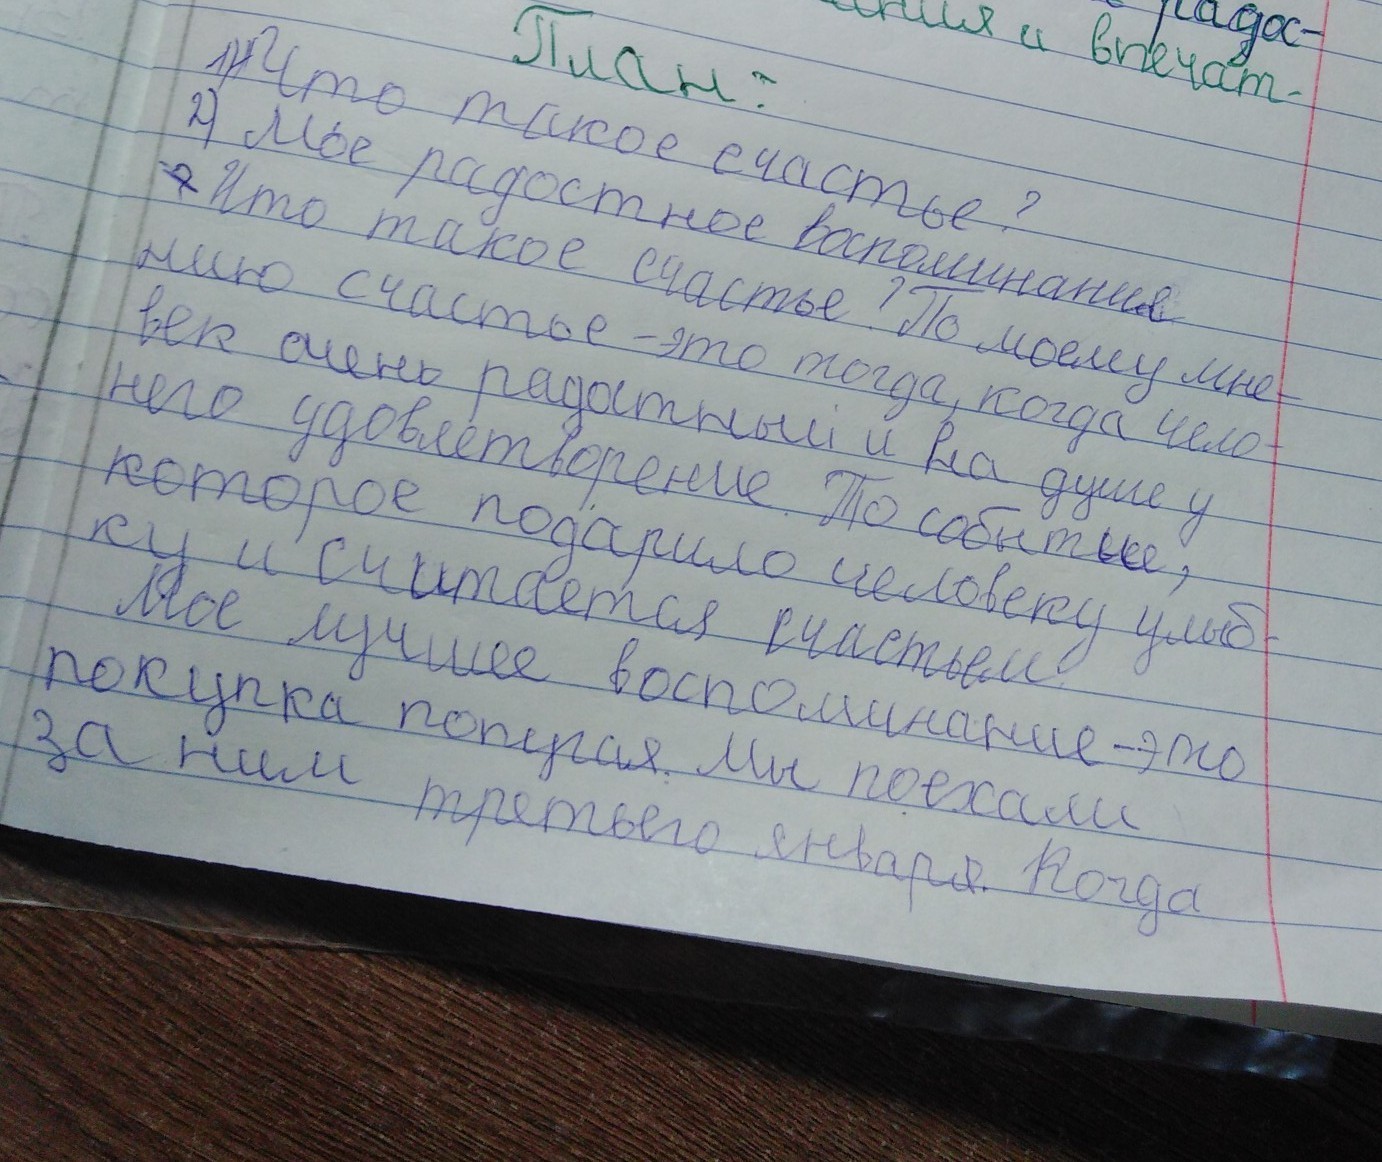 радос-
ния и впечат-
План:
1) Что такое счастье?
2) Мое радостное воспоминание
Что такое счастье? По моему мне-
нию счастье - это тогда, когда чело-
век очень радостный и на душе у
него удовлетворение. То событие,
которое подарило человеку улыб-
ку и считается счастьем.
Мое лучшее воспоминание - это
покупка попугая. Мы поехали
за ним третьего января. Когда